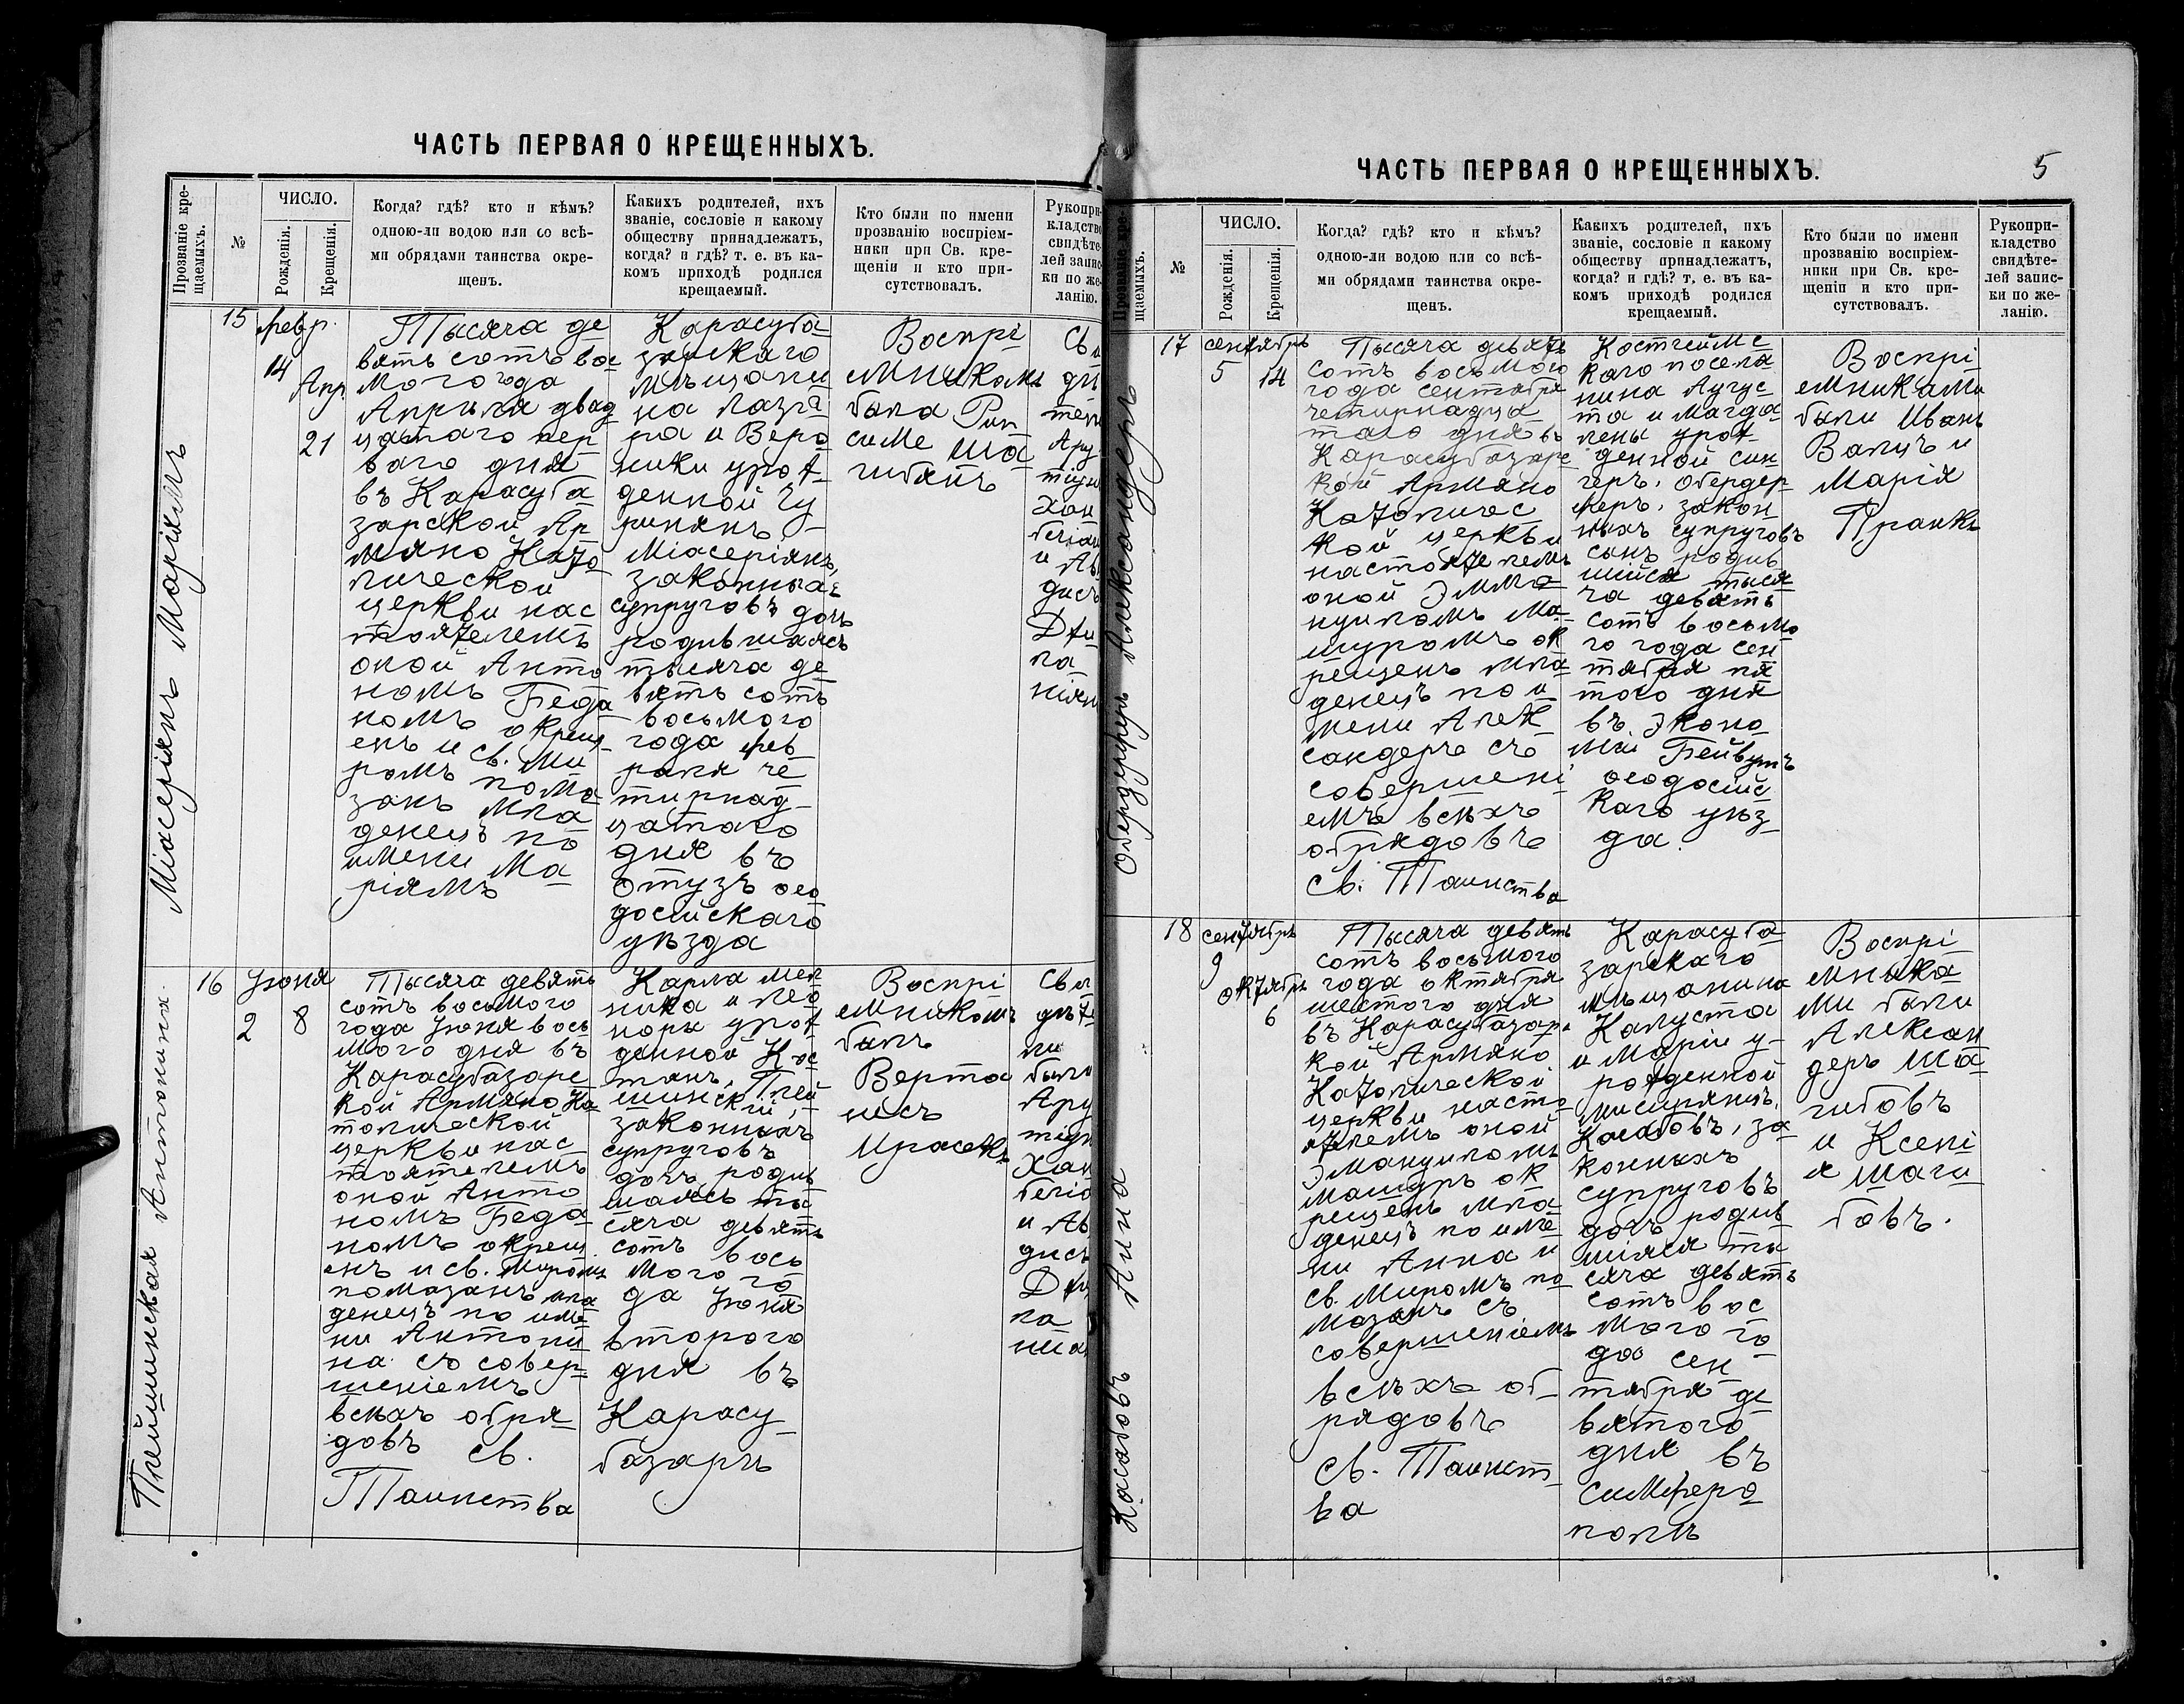 ЧАСТЬ ПЕРВАЯ О КРЕЩЕННЫХЪ.
Прозваніе кре-
щаемыхъ.
№
ЧИСЛО.
Рожденія.
Крещенія.
Когда? гдѣ? кто и кѣмъ?
одною-ли водою или со всѣ-
ми обрядами таинства окре-
щенъ.
Какихъ родителей, ихъ
званіе, сословіе и какому
обществу принадлежатъ,
когда? и гдѣ? т. е. въ ка-
комъ приходѣ родился
крещаемый.
Кто были по имени
прозванію воспріем-
ники при Св. кре-
щеніи и кто при-
сутствовалъ.
Рукопри-
кладство
свидѣте-
лей запис-
ки по же-
ланію.
Міосеріянъ Маріямъ
15
февр.
14
Апр.
21
Тысяча де
вять сотъ вос
мого года
Апрѣля двад
цатаго пер
ваго дня
въ Карасуба
зарской Ар
мяно Като
лической
церкви нас
тоятелемъ
оной Анто
номъ Беда
номъ окрещ
енъ и св. Ми
ромъ пома
занъ мла
денецъ по
имени Ма
ріямъ
Карасуба
зарскаго
мѣщани
на Лаза
ра и Веро
ники урож
денной Чу
Міосеріянъ,
законныхъ
супруговъ дочь
родившаясь
тысяча де
вять сотъ
восьмого
года фев
раля че
тырнад
цатаго
дня въ
Отузъ Ѳео
досійскаго
уѣзда
Воспрі
емникомъ
была Рип
симе Ша
гибянъ
Сви
Ару
тюн
Хан
и Ав
дисъ
Джи
ла
Плейшинская Антонина.
16
Іюня
2
8
Тысяча девять
сотъ восьмого
года Іюня вось
мого дня въ
Карасубазарс
кой Армяно Ка
толической
церкви нас
тоятелемъ
оной Анто
номъ Беда
номъ окрещ
енъ и св. Миромъ
помазанъ мла
денецъ по име
ни Антони
на съ совер
шеніемъ
всѣхъ обря
довъ св.
Таинства
Карла Мек
ника и Лео
норы урож
денной Кос
танъ, Плей
шинскій,
законныхъ
супруговъ
дочь родив
шаясь ты
сяча девять
сотъ вось
мого го
да Іюня
второго
дня въ
Карасу
базаръ
Воспрі
емникомъ
былъ
Верта
несъ
Сви
дѣте
ли
были
Ару
тюн
Хан
и Ав
дисъ
Джи
ла
ЧАСТЬ ПЕРВАЯ О КРЕЩЕННЫХЪ.
5
Прозваніе кре-
щаемыхъ.
№
ЧИСЛО.
Рожденія.
Крещенія.
Когда? гдѣ? кто и кѣмъ?
одною-ли водою или со всѣ-
ми обрядами таинства окре-
щенъ.
Какихъ родителей, ихъ
званіе, сословіе и какому
обществу принадлежатъ,
когда? и гдѣ? т. е. въ ка-
комъ приходѣ родился
крещаемый.
Кто были по имени
прозванію воспріем-
ники при Св. кре-
щеніи и кто при-
сутствовалъ.
Рукопри-
кладство
свидѣте-
лей запис-
ки по же-
ланію.
Обердерферъ Александеръ
17
сентябрь
5
14
Тысяча девять
сотъ восьмого
года сентября
четырнадца
таго дня въ
Карасубазарс
кой Армяно
Католичес
кой церкви
настоятелемъ
оной Эмма
нуиломъ Ма
шуромъ ок
рещенъ мла
денецъ по и
мени Алек
сандеръ съ
совершені
емъ всѣхъ
обрядовъ
Св. Таинства
каго посела
нина Авгус
та и Магда
лены урож
денной Син
геръ, Обердер
феръ, закон
ныхъ супруговъ
сынъ родив
шійся тыся
ча девять
сотъ восьмо
го года сен
тября пя
того дня
въ эконо
міи Бейвутъ
Ѳеодосійс
каго уѣз
да.
Воспрі
емниками
были Иванъ
Валцъ и
Марія
Пранкъ
Касабовъ Анна
18
сентябрь
9
октябрь
6
Тысяча девять
сотъ восьмого
года октября
шестого дня
въ Карасубазарс
кой Армяно
Католической
церкви насто
ятелемъ оной
Эмануиломъ
Машуръ ок
рещенъ мла
денецъ по име
ни Анна и
св. Миромъ по
мазанъ съ
совершеніемъ
всѣхъ об
рядовъ
Св. Таинст
ва
Карасуба
зарскаго
мѣщанина
Капуста
и Маріи у-
рожденной
Касабовъ, за
конныхъ
супруговъ
дочь родив
шіяся ты
сяча девять
сотъ вос
мого го
да сен
тября де
вятого
дня въ
Симферо
полѣ
Воспрі
емника
ми были
Алексан
деръ Ша
гибовъ
и Ксені
я Шаги
бовъ.